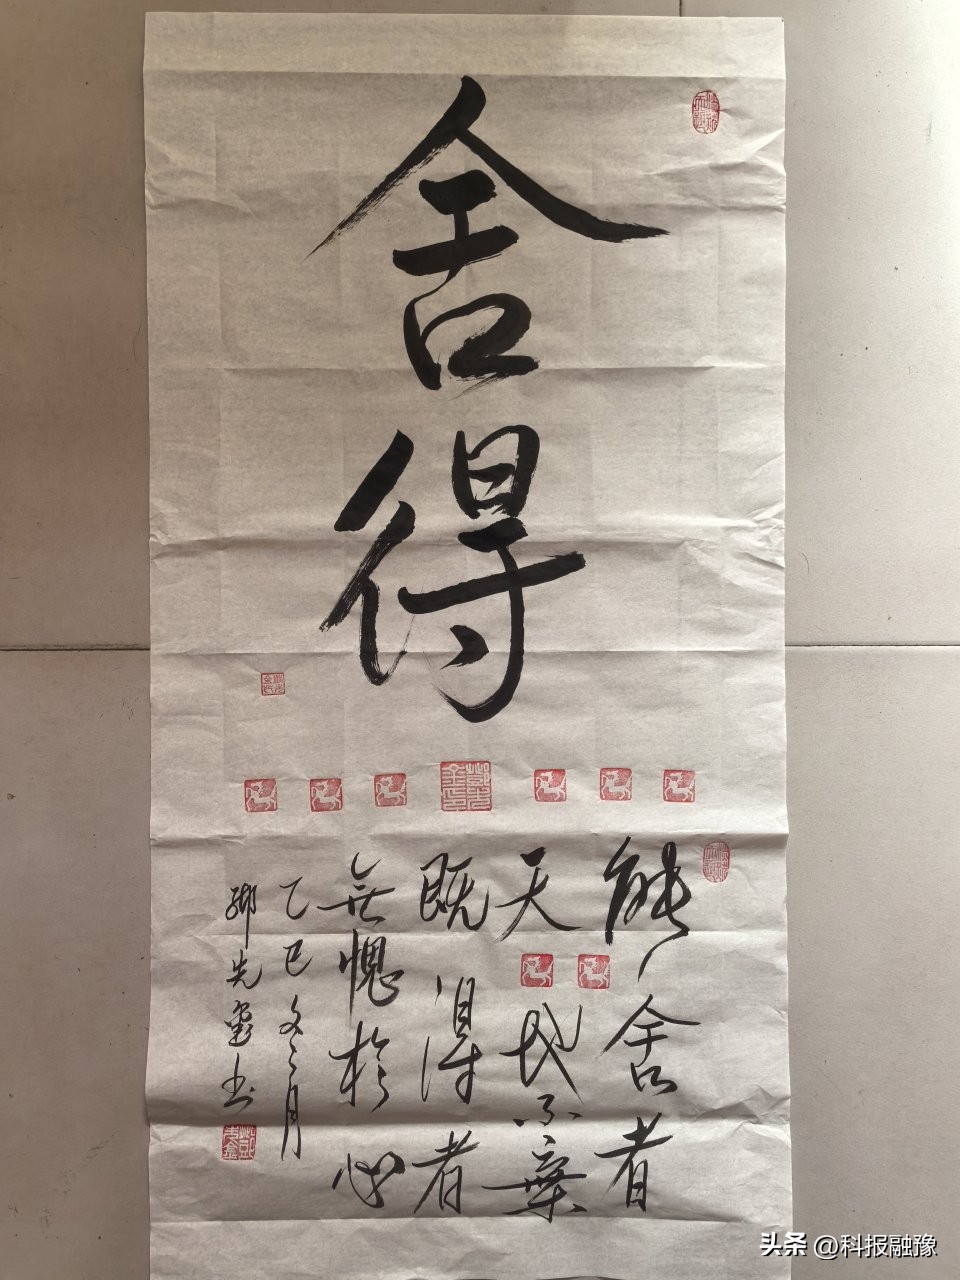 舍得
能舍者
天地不棄
既得者
無愧於心
乙巳冬月
鄧先书
头条 @科报融豫